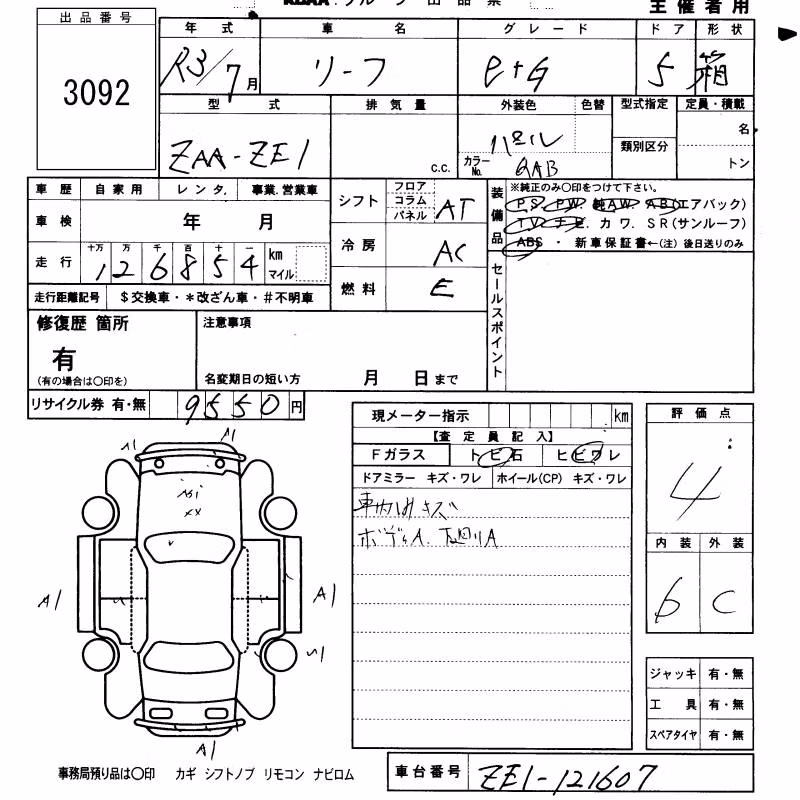 出品番号
3092
主催者用
年式 車名 グレード ドア 形状
R3/7月 リーフ e+G 5 箱
型式 排気量 外装色 色替 型式指定 定員・積載
ZAA-ZE1 c.c. パール 類別区分 名
カラーNo. QAB トン
車歴 自家用 レンタ. 事業.営業車
車検 年 月
走行 十万 万 千 百 十 一
126854 km マイル
走行距離記号 $交換車・*改ざん車・#不明車
シフト フロア コラム パネル AT
冷房 AC
燃料 E
装備品 ※純正のみ〇印をつけて下さい。
PS PW 純AW AB(エアバック)
TV ナビ. カワ. SR(サンルーフ)
ABS ・ 新車保証書←(注) 後日送りのみ
セールスポイント
修復歴 箇所
有
(有の場合は〇印を)
注意事項
名変期日の短い方 月 日まで
リサイクル券 有・無 9550円
現メーター指示 km
【査定員記入】
Fガラス トビ石 ヒビワレ
ドアミラー キズ・ワレ ホイール(CP) キズ・ワレ
車内凹みキズ
ボディA. 下廻りA
評価点
4
内装 外装
6 C
ジャッキ 有・無
工具 有・無
スペアタイヤ 有・無
A1
A1
A1
A1
A1
事務局預り品は〇印 カギ シフトノブ リモコン ナビロム
車台番号 ZE1-121607